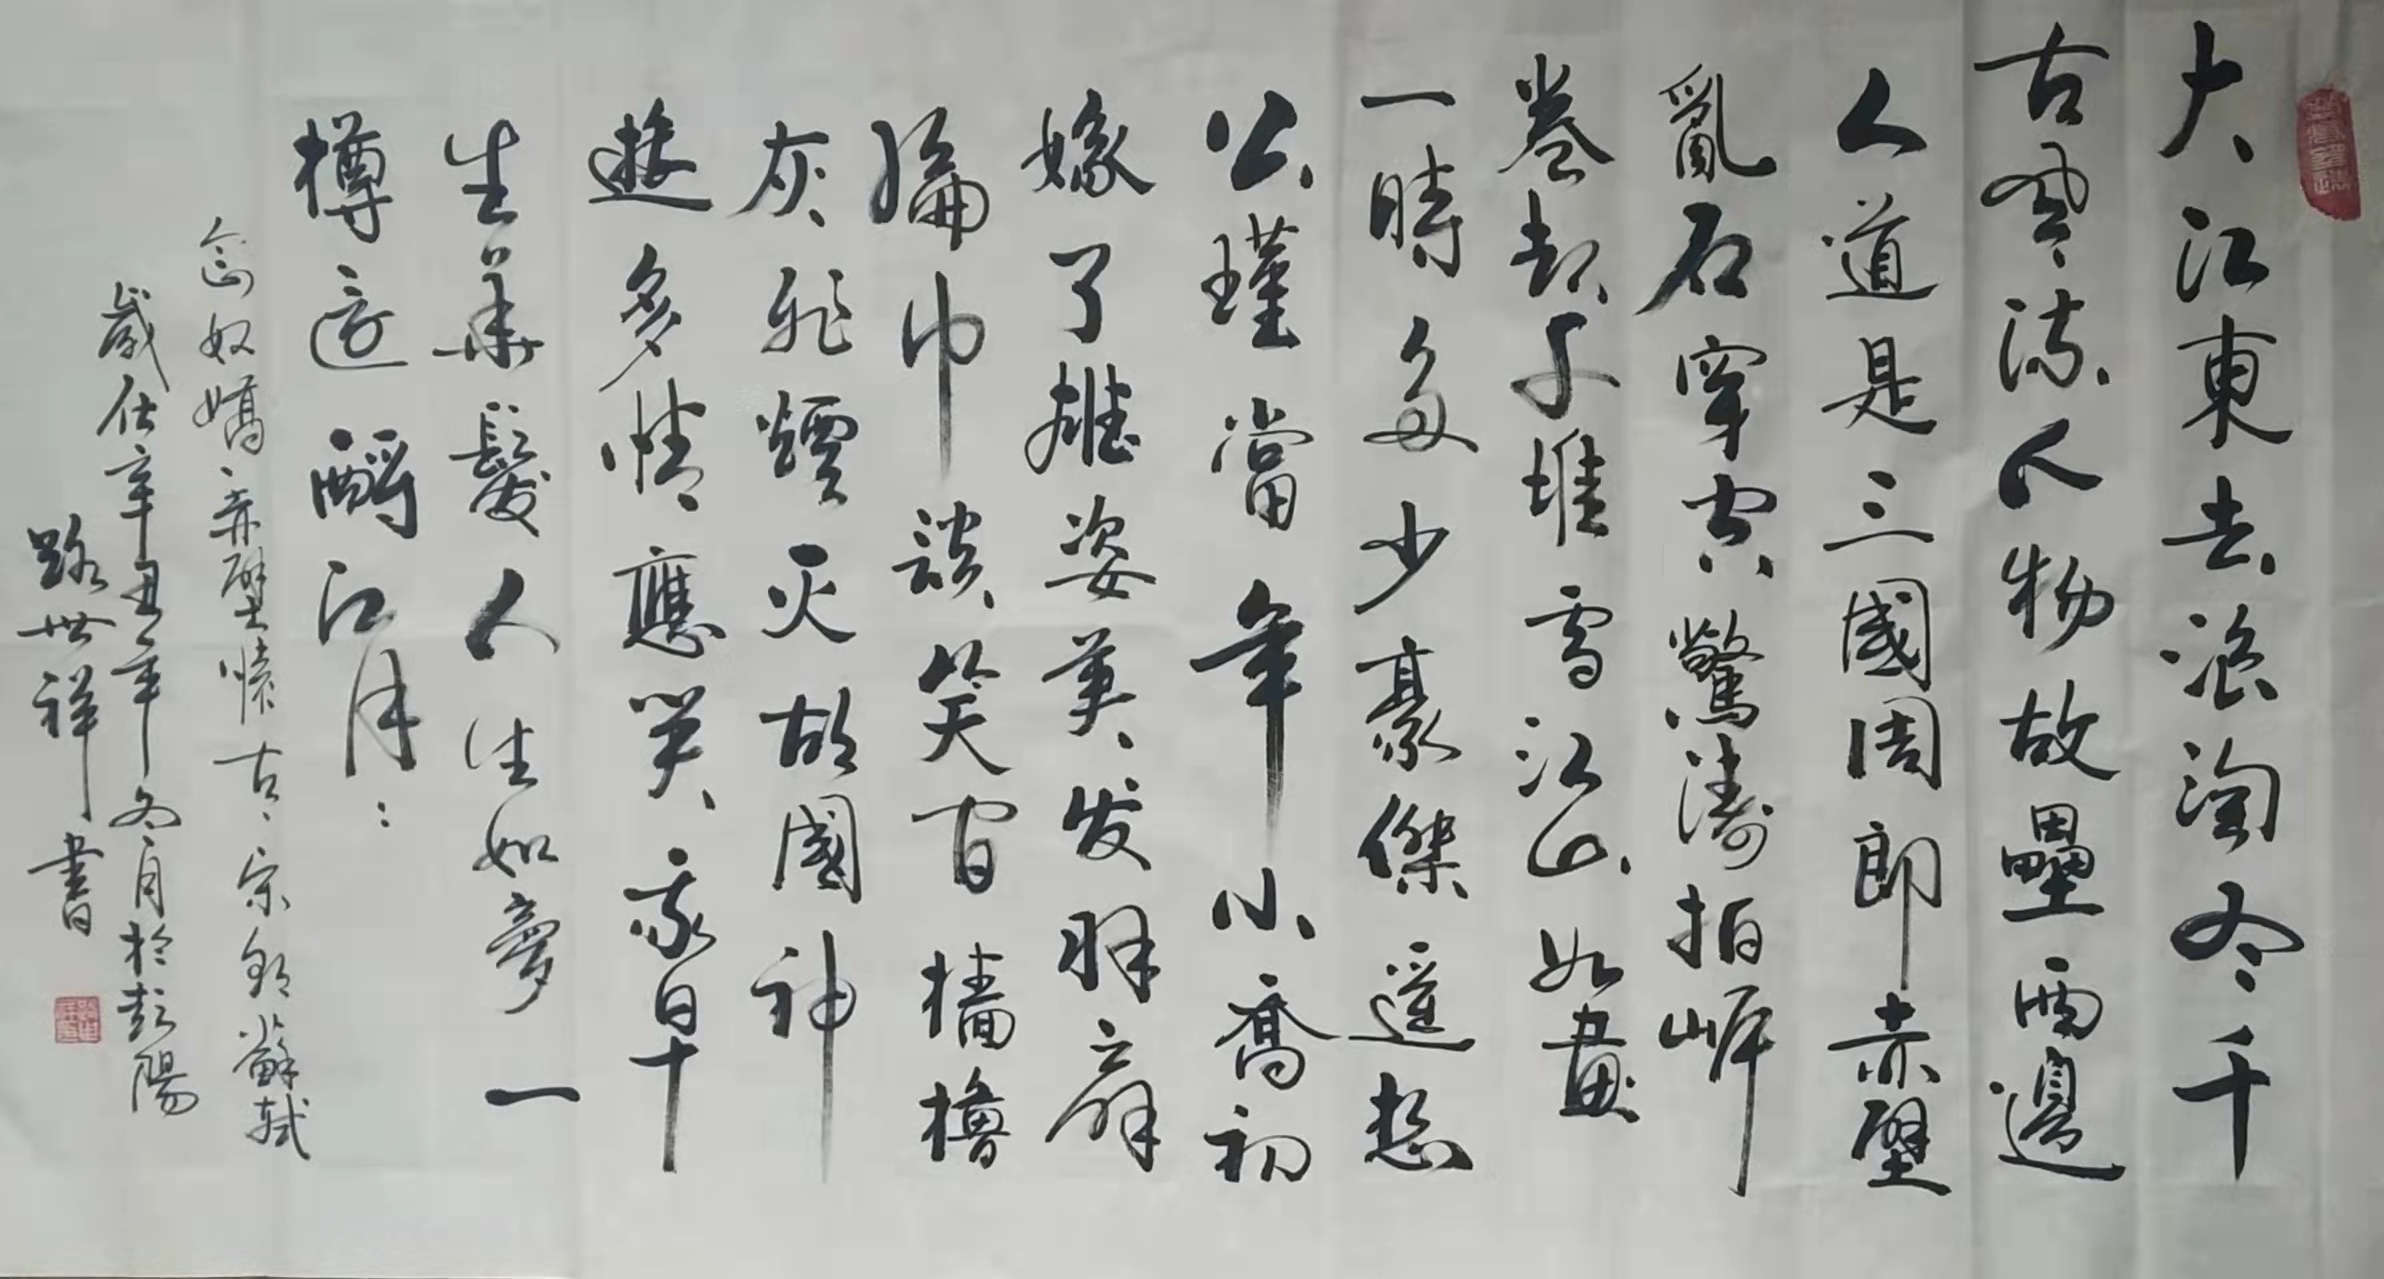 大江東去浪淘尽千
古风流人物故壘西邊
人道是三國周郎赤壁
亂石穿空驚濤拍岸
卷起千堆雪江山如畫
一時多少豪傑遥想
公瑾當年小喬初
嫁了雄姿英发羽扇
綸巾談笑间檣櫓
灰飛煙灭故國神
遊多情應笑我早
生華髮人生如夢一
樽还酹江月
念奴嬌赤壁懷古宋朝蘇軾
歲在辛丑年冬月於彭陽
路世祥書